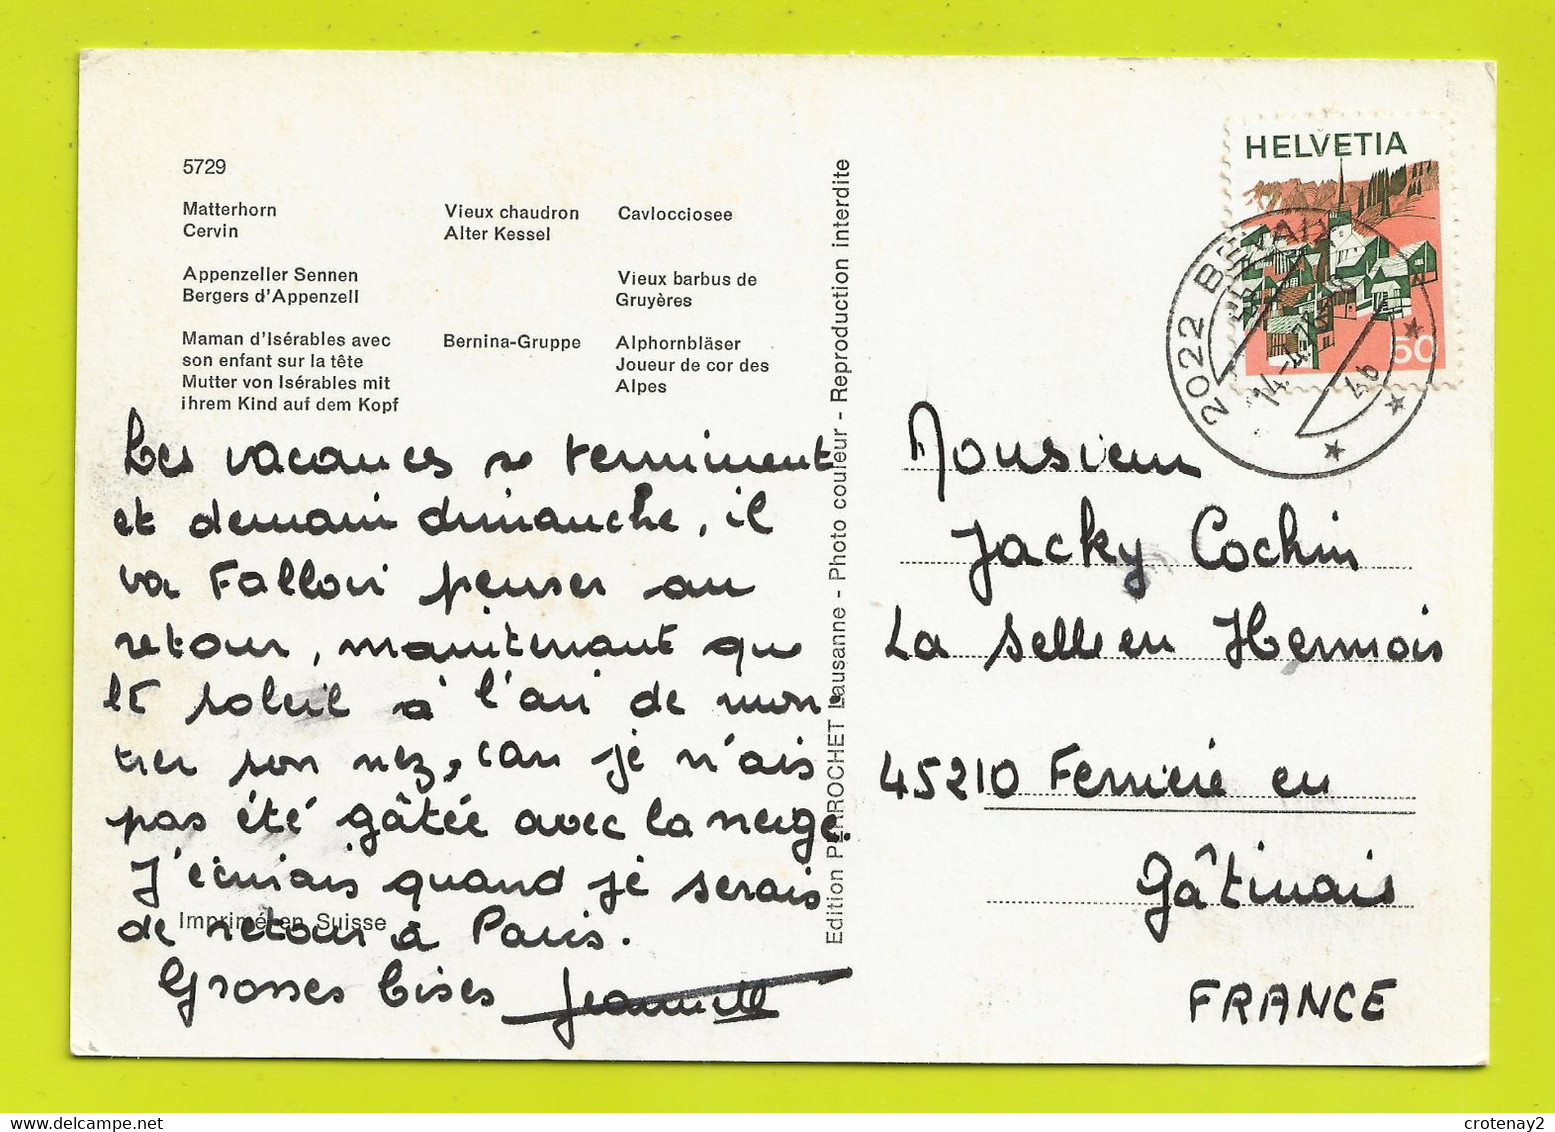 5729
Matterhorn
Cervin
Vieux chaudron
Alter Kessel
Cavlocciosee
Appenzeller Sennen
Bergers d'Appenzell
Vieux barbus de
Gruyères
Maman d'Isérables avec
son enfant sur la tête
Mutter von Isérables mit
ihrem Kind auf dem Kopf
Bernina-Gruppe
Alphornbläser
Joueur de cor des
Alpes
Les vacances se terminent
et demain dimanche, il
va falloir penser au
retour, maintenant que
le soleil à l'air de mon-
trer son nez, car je n'ais
pas été gâtée avec la neige.
J'écrirais quand je serais
de retour à Paris.
Grosses bises Jeannette
Imprimé en Suisse
Edition PERROCHET Lausanne - Photo couleur - Reproduction interdite
HELVETIA
50
2022 BEVAIX
14.-4.
Monsieur
Jacky Cochin
La Selle en Hermois
45210 Ferrière en
Gâtinais
FRANCE
crotenay2